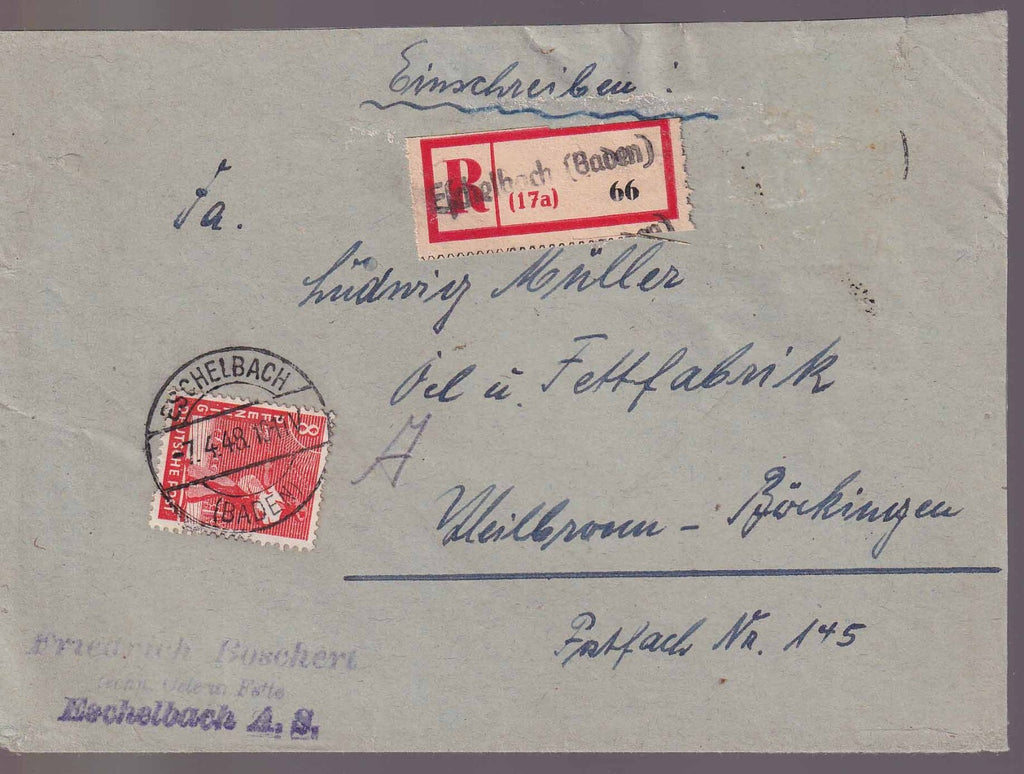 Einschreiben!
R Eschelbach (Baden)
(17a) 66
Fa.
Ludwig Müller
Oel u. Fettfabrik
Heilbronn - Böckingen
Postfach Nr. 145
ESCHELBACH
-7.4.48
(BADEN)
8
PFENNIG
DEUTSCHE POST
Friedrich Boschert
techn. Oele u. Fette
Eschelbach A. S.